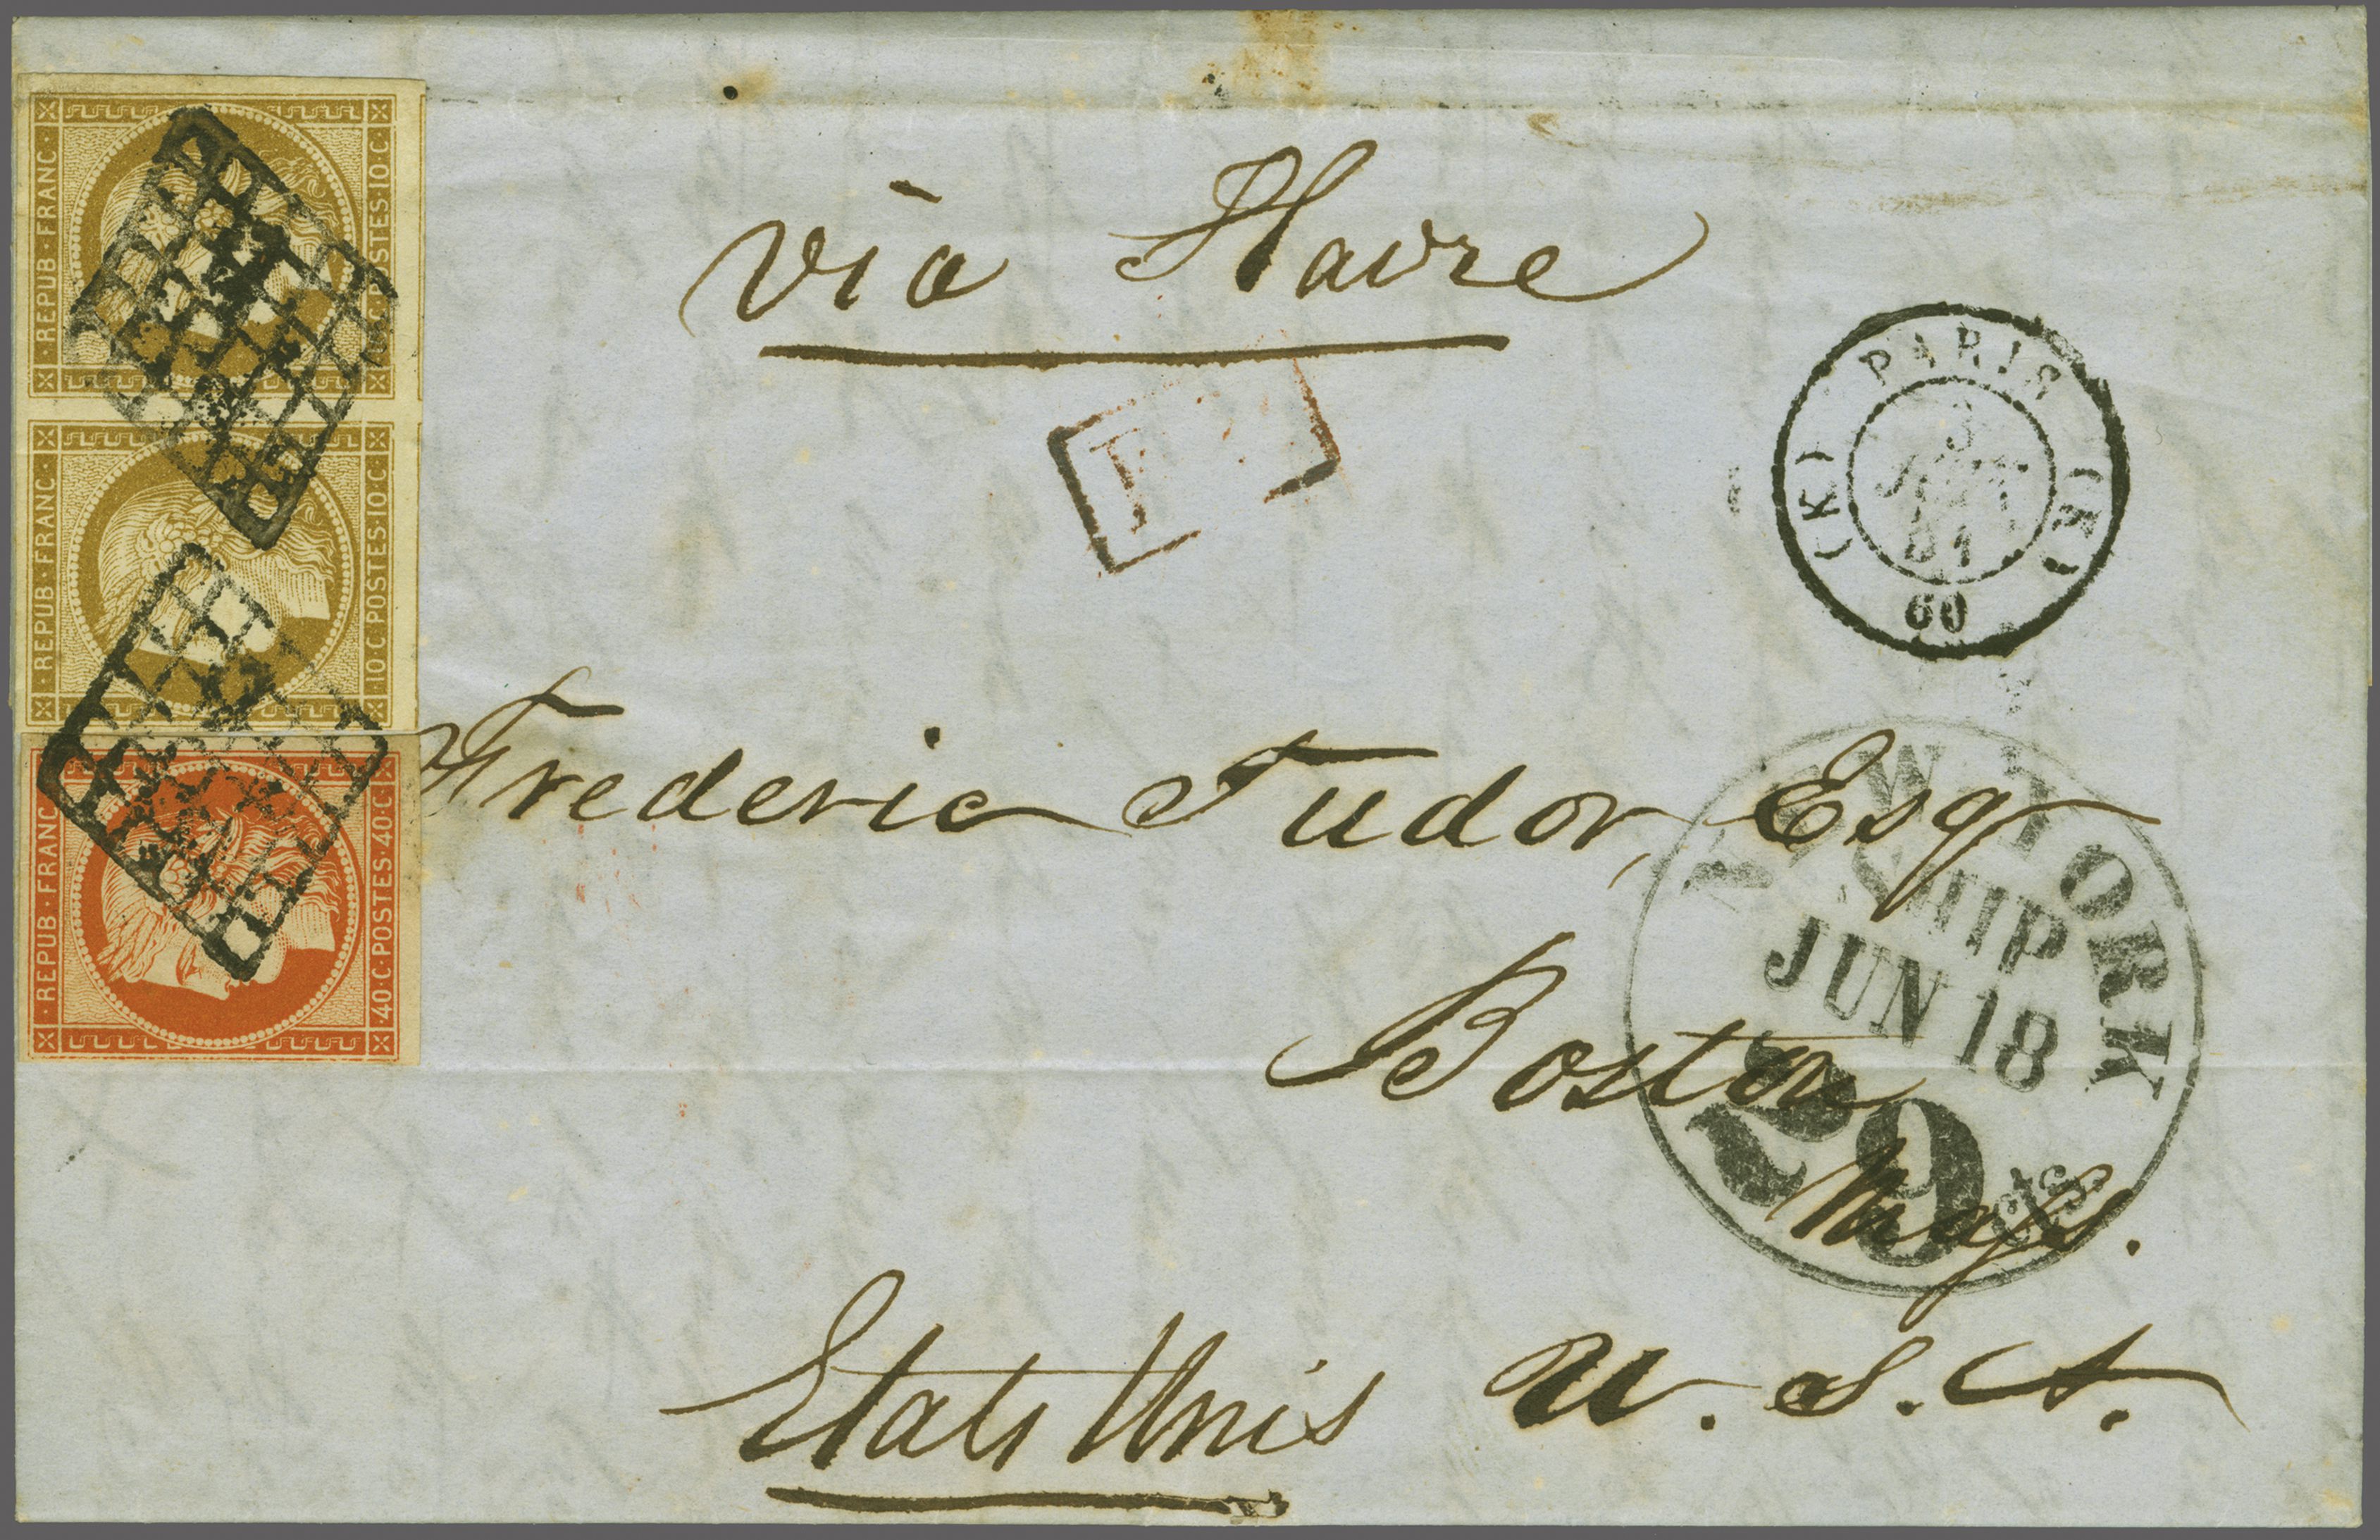 · REPUB · FRANC ·
10 · C · POSTES · 10 · C ·
· REPUB · FRANC ·
10 · C · POSTES · 10 · C ·
· REPUB · FRANC
· 40 · C · POSTES · 40 · C ·
via Havre
PARIS
(K) (K)
3
51
60
P
Frederic Tudor, Esq
Boston
Mass.
Etats Unis U. S. A.
NEW YORK
SHIP
JUN 18
20 cts